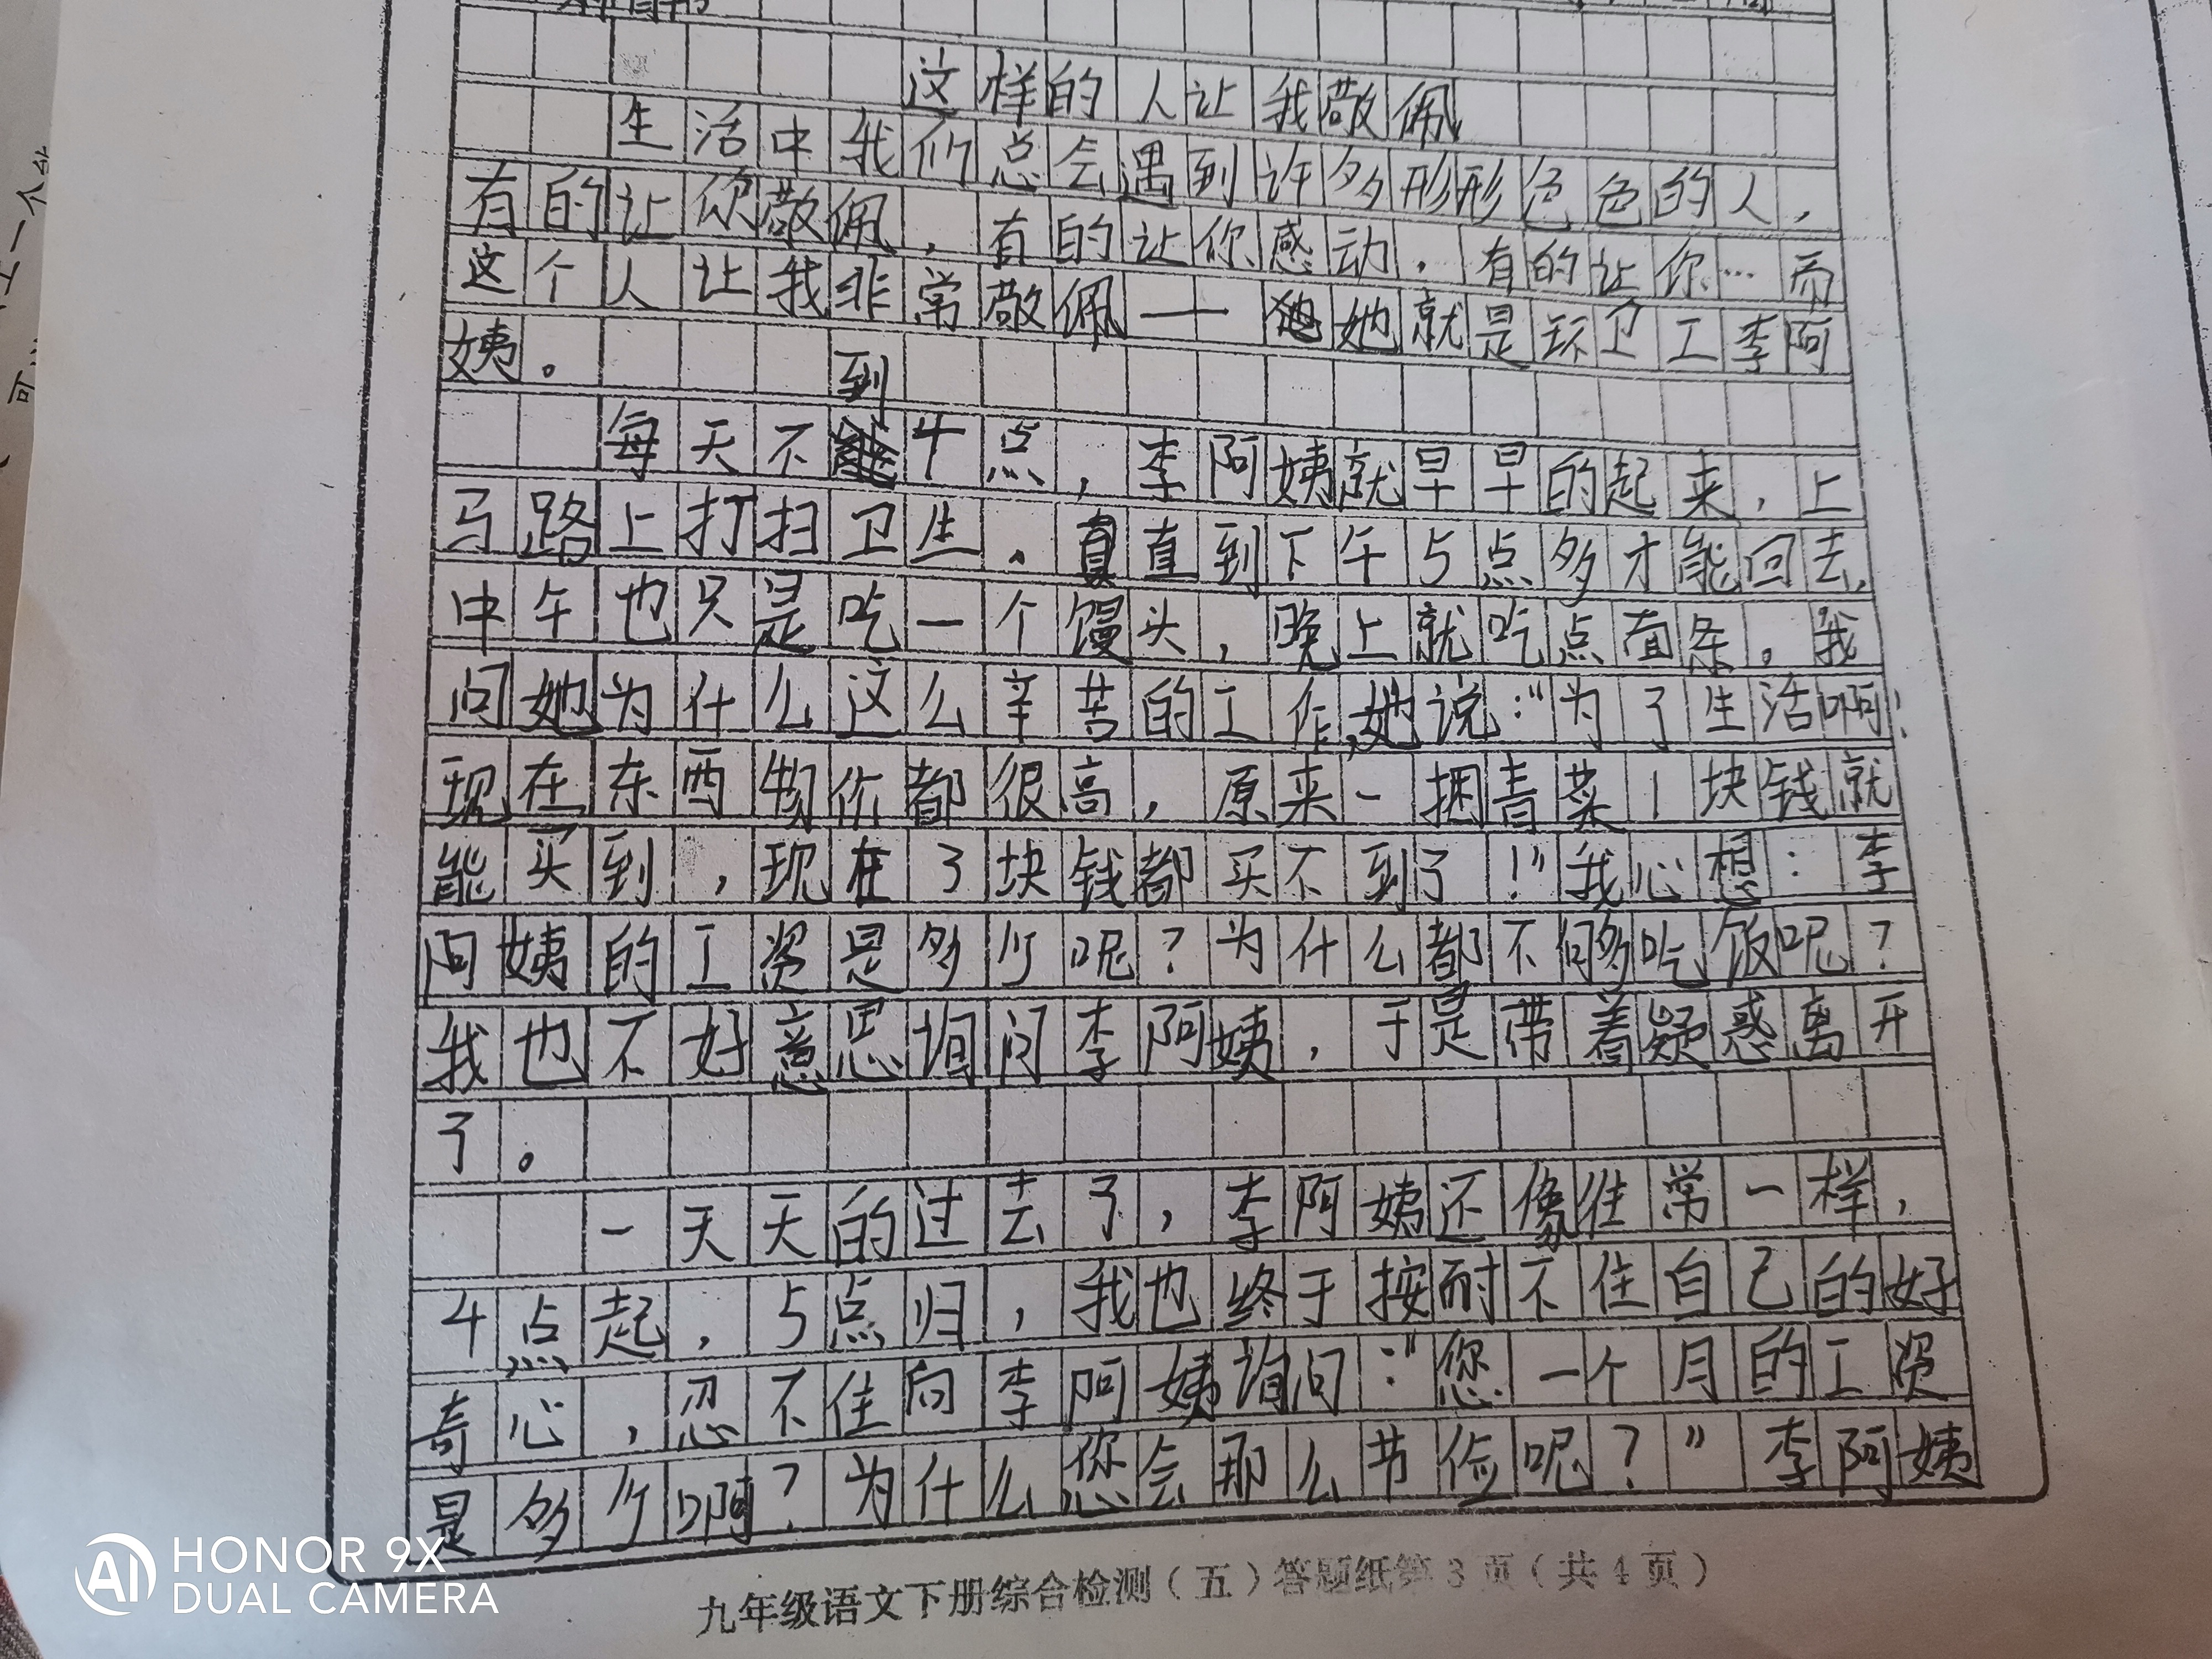 这样的人让我敬佩
生活中我们总会遇到许多形形色色的人，
有的让你敬佩，有的让你感动，有的让你…而
这个人让我非常敬佩——她就是环卫工李阿
姨。
到
每天不4点，李阿姨就早早的起来，上
马路上打扫卫生。直到下午5点多才能回去，
中午也只是吃一个馒头，晚上就吃点面条。我
问她为什么这么辛苦的工作，她说：“为了生活啊！
现在东西物价都很高，原来一捆青菜1块钱就
能买到，现在3块钱都买不到了！”我心想：李
阿姨的工资是多少呢？为什么都不够吃饭呢？
我也不好意思询问李阿姨，于是带着疑惑离开
了。
一天天的过去了，李阿姨还像往常一样，
4点起，5点归，我也终于按耐不住自己的好
奇心，忍不住向李阿姨询问：“您一个月的工资
是多少啊？为什么您会那么节俭呢？”李阿姨
九年级语文下册综合检测（五）答题纸第3页（共4页）
HONOR 9X
DUAL CAMERA
AI